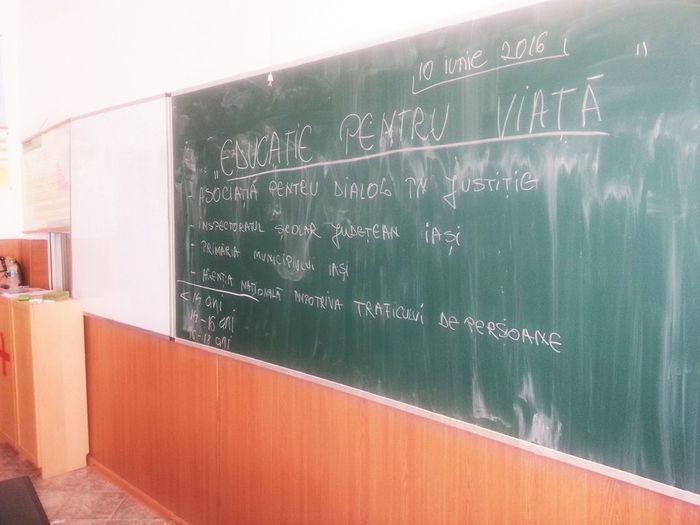 10 iunie 2016
„EDUCAȚIE PENTRU VIAȚĂ"
- ASOCIAȚIA PENTRU DIALOG ÎN JUSTIȚIE
- INSPECTORATUL ȘCOLAR JUDEȚEAN IAȘI
- PRIMĂRIA MUNICIPIULUI IAȘI
- AGENȚIA NAȚIONALĂ ÎMPOTRIVA TRAFICULUI DE PERSOANE
< 14 ani
ani
ani